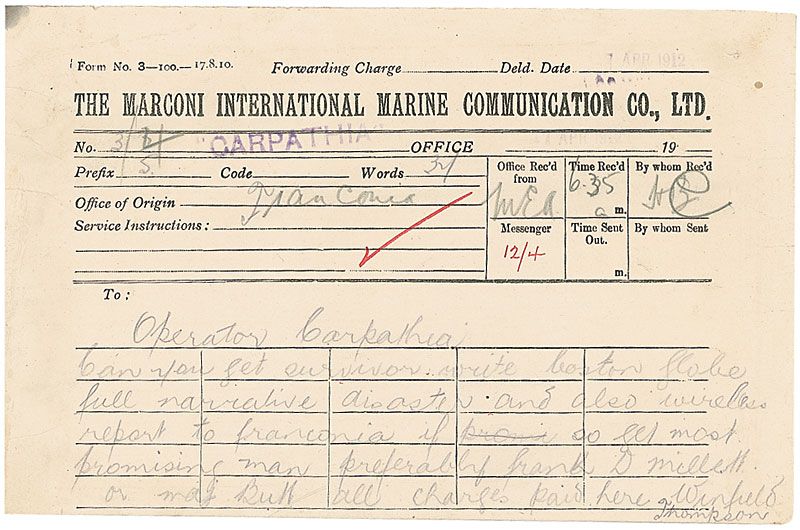 Form No. 3—100.—17.8.10. Forwarding Charge Deld. Date 7 APR 1912
THE MARCONI INTERNATIONAL MARINE COMMUNICATION CO., LTD.
No. CARPATHIA OFFICE 19
Prefix S Code Words
Office Rec'd from MEA Time Rec'd 6.35 a m. By whom Rec'd
Office of Origin Franconia
Service Instructions:
Messenger 12/4 Time Sent Out. m. By whom Sent
To:
Operator Carpathia
Can you get survivor write boston globe
full narrative disaster and also wireless
report to franconia if promi so get most
promising man preferably frank D millett
or maj Butt all charges paid here Winfield
Thompson